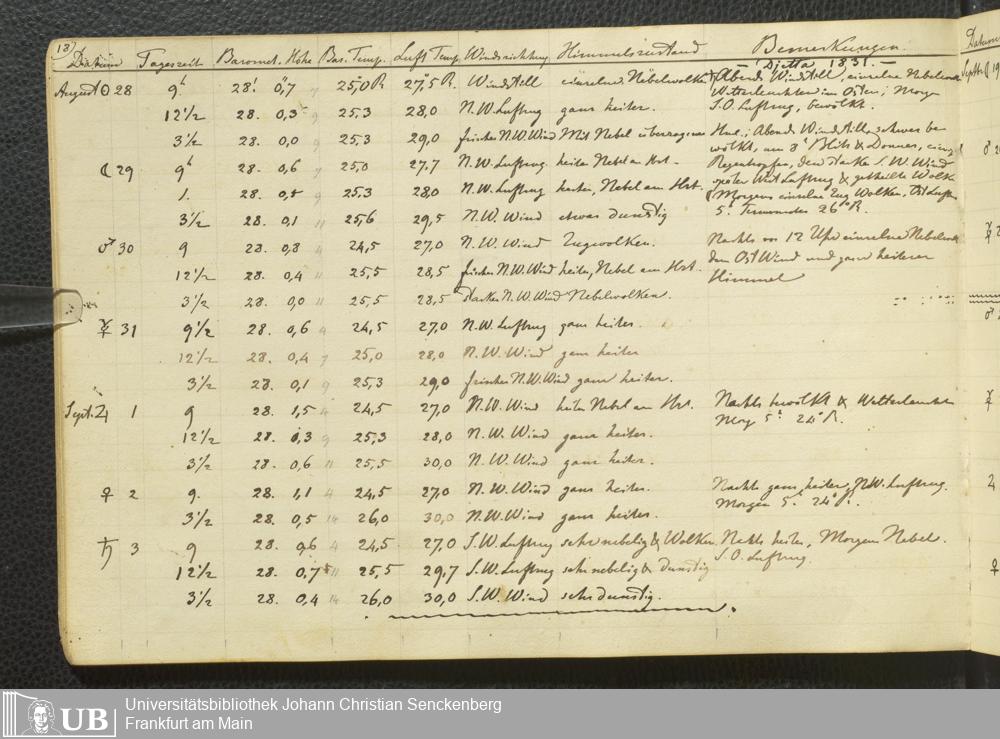 18)
Datum Tageszeit Baromet. Höhe Bar. Temp. Luft Temp. Windrichtung Himmelszustand Bemerkungen.
— Djetta 1831. —
August ☉ 28 9h 28.' 0,"7 25,0 R 27,5 R. Windstill einzelne Nebelwolken Abend Windstill, einzelne Nebelwolk
Wetterleuchten im Osten; Morgen
12 1/2 28. 0,3 9 25,3 28,0 N.W. Luftzug ganz heiter. S.O. Luftzug, bewölkt.
3 1/2 28. 0,0 9 25,3 29,0 frischer N.W. Wind Mit Nebel überzogen Abends Windstill, schwer be
wölkt, um 8h Blitz & Donner, einige
☾ 29 9h 28. 0,6 25,0 27,7 N.W. Luftzug. heiter Nebel am Hrt. Regentropfen, dann starker S.W. Wind
später West Luftzug & getheilte Wolk
1. 28. 0,5 9 25,3 28,0 N.W. Luftzug heiter, Nebel am Hrt. Morgens einzelne Zug Wolken, Ost Luftz
3 1/2 28. 0,1 11 25,6 29,5 N.W. Wind etwas dunstig 5h. Termometer 26° R.
♂ 30 9 28. 0,8 4 24,5 27,0 N.W. Wind Zugwolken. Nachts vor 12 Uhr einzelne Nebelwolk
dann Ost Wind und ganz heiterer
12 1/2 28. 0,4 11 25,5 28,5 frischer N.W. Wind heiter, Nebel am Hrt. Himmel
3 1/2 28. 0,0 11 25,5 28,5 starker N.W. Wind Nebelwolken.
☿ 31 9 1/2 28. 0,6 4 24,5 27,0 N.W. Luftzug ganz heiter.
12 1/2 28. 0,4 7 25,0 28,0 N.W. Wind ganz heiter
3 1/2 28. 0,1 9 25,3 29,0 frischer N.W. Wind ganz heiter.
Sept. ♃ 1 9 28. 1,5 4 24,5 27,0 N.W. Wind heiter Nebel am Hrt. Nachts bewölkt & Wetterleuchten
Morg 5h. 24° R.
12 1/2 28. 0,3 9 25,3 28,0 N.W. Wind ganz heiter.
3 1/2 28. 0,6 11 25,5 30,0 N.W. Wind ganz heiter.
♀ 2 9. 28. 1,1 4 24,5 27,0 N.W. Wind ganz heiter. Nachts ganz heiter, N.W. Luftzug.
Morgen 5h. 24° R.
3 1/2 28. 0,5 14 26,0 30,0 N.W. Wind ganz heiter.
♄ 3 9 28. 0,6 4 24,5 27,0 S.W. Luftzug sehr nebelig & Wolken Nachts heiter, Morgens Nebel.
S.O. Luftzug.
12 1/2 28. 0,75 11 25,5 29,7 S.W. Luftzug sehr nebelig & dunstig
3 1/2 28. 0,4 14 26,0 30,0 S.W. Wind sehr dunstig.
Datum
UB
Universitätsbibliothek Johann Christian Senckenberg
Frankfurt am Main